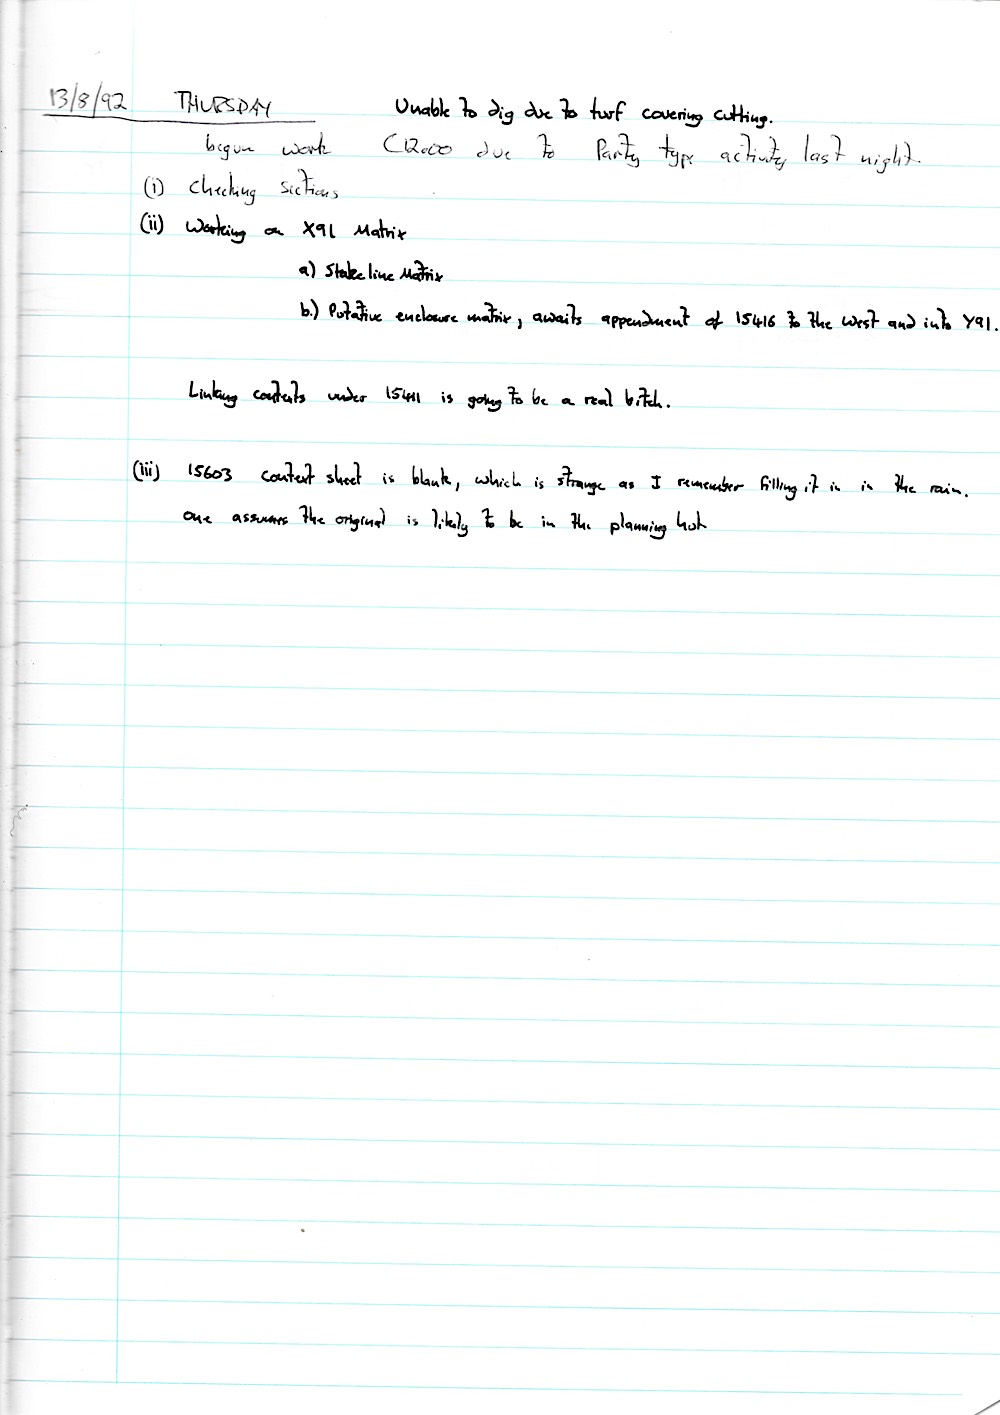 13/8/92 THURSDAY Unable to dig due to turf covering cutting.
begun work C12.00 due to Party type activity last night.
(i) Checking sections
(ii) Working on X91 Matrix
a) Stakeline Matrix
b.) Putative enclosure matrix, awaits appendment of 15416 to the west and into Y91.
Linking contexts under 15411 is going to be a real bitch.
(iii) 15603 context sheet is blank, which is strange as I remember filling it in in the rain.
one assumes the original is likely to be in the planning hut